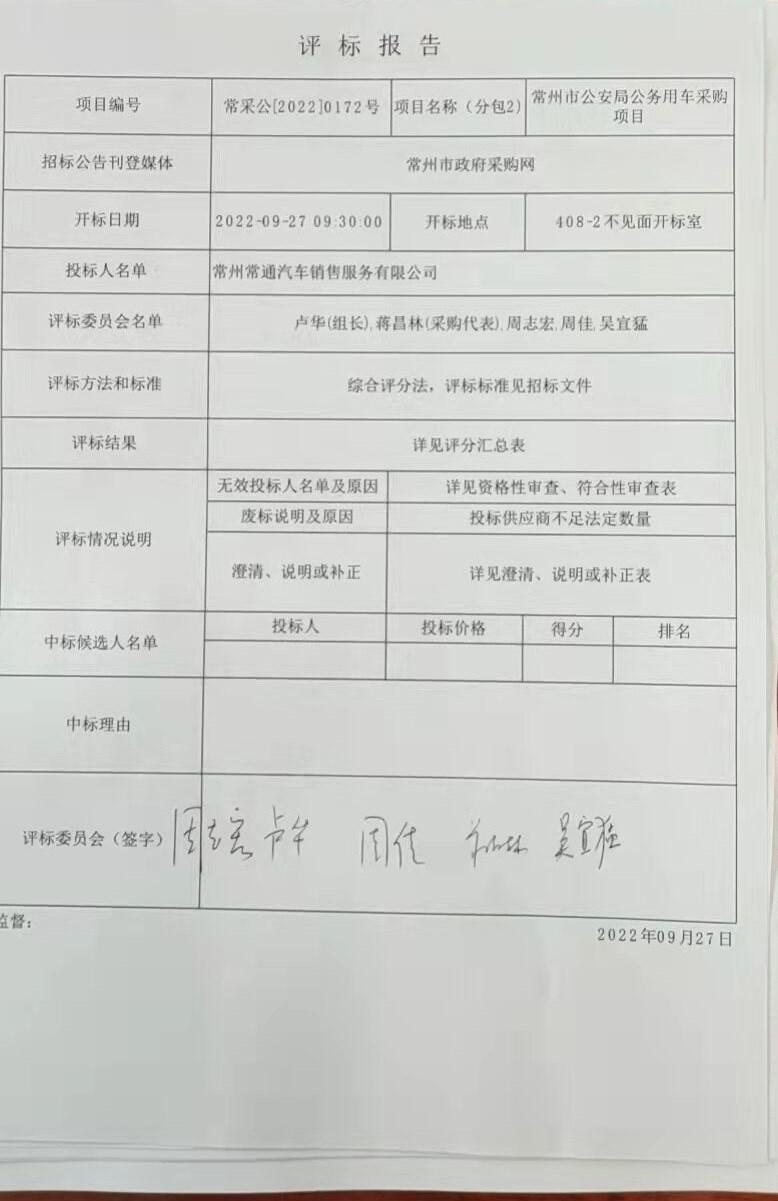 评标报告
项目编号 常采公[2022]0172号 项目名称（分包2） 常州市公安局公务用车采购
项目
招标公告刊登媒体 常州市政府采购网
开标日期 2022-09-27 09:30:00 开标地点 408-2不见面开标室
投标人名单 常州常通汽车销售服务有限公司
评标委员会名单 卢华(组长),蒋昌林(采购代表),周志宏,周佳,吴宜猛
评标方法和标准 综合评分法，评标标准见招标文件
评标结果 详见评分汇总表
评标情况说明
无效投标人名单及原因 详见资格性审查、符合性审查表
废标说明及原因 投标供应商不足法定数量
澄清、说明或补正 详见澄清、说明或补正表
中标候选人名单
投标人 投标价格 得分 排名
中标理由
评标委员会（签字） 周志宏 卢华 周佳 蒋昌林 吴宜猛
监督：
2022年09月27日